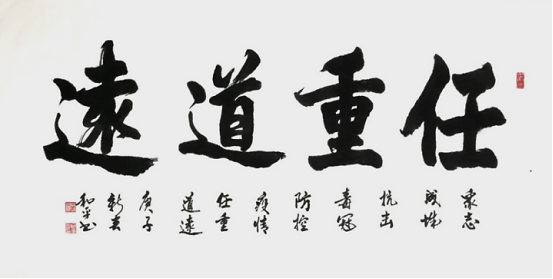 任重道遠
衆志
成城
抗击
毒冠
防控
疫情
任重
道遠
庚子
新春
和平书